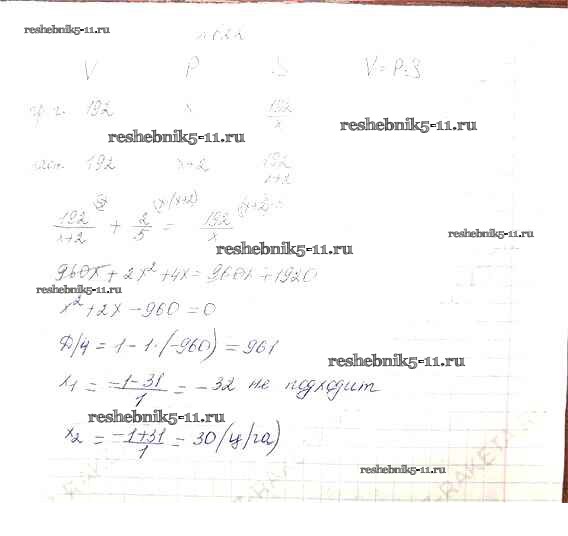 reshebnik5-11.ru
V P S V = P·S
192 x 192/x
reshebnik5-11.ru reshebnik5-11.ru
192 x+2 192/x+2
192/x+2 + 2/5 = 192/x
reshebnik5-11.ru
reshebnik5-11.ru
960x + 2x² + 4x = 960x + 1920
reshebnik5-11.ru
x² + 2x - 960 = 0
Д/4 = 1 - 1·(-960) = 961
reshebnik5-11.ru
x₁ = -1-31/1 = -32 не подходит
reshebnik5-11.ru
x₂ = -1+31/1 = 30 (ц/га)
reshebnik5-11.ru